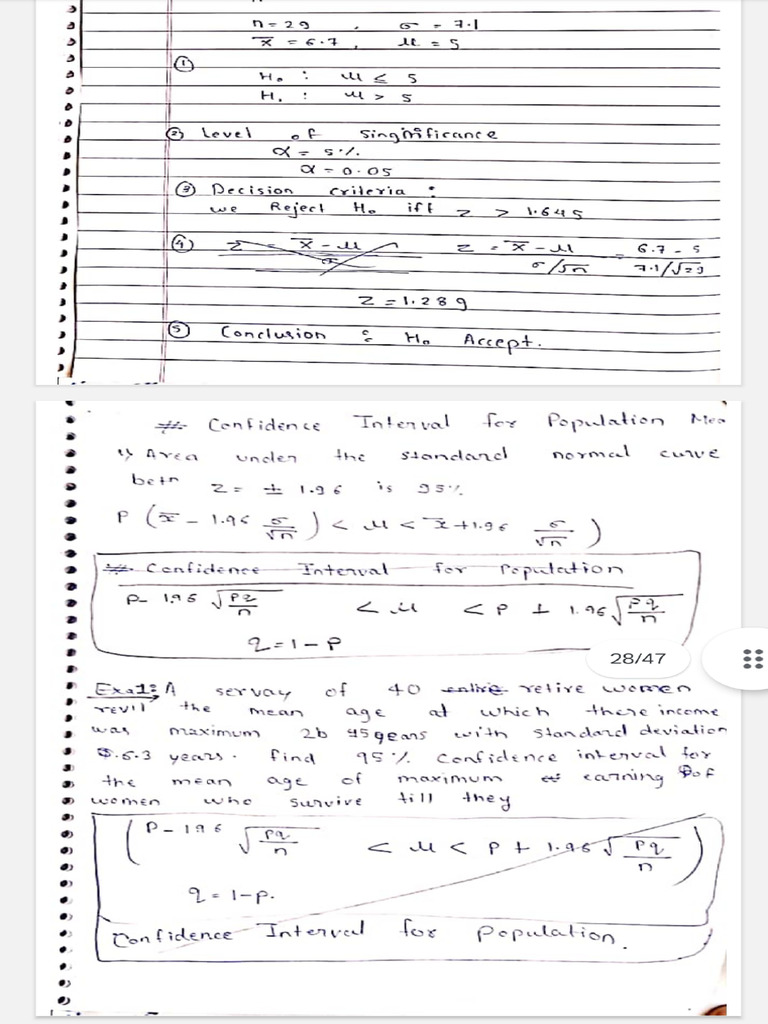 n = 29 , σ = 7.1
x̄ = 6.7 , μ = 5
①
H₀ : μ ≤ 5
H₁ : μ > 5
② Level of singnificance
α = 5%
α = 0.05
③ Decision criteria :
we Reject H₀ iff z > 1.645
④ Z = x̄ - μ / σ Z = x̄ - μ / σ/√n = 6.7 - 5 / 7.1/√29
Z = 1.289
⑤ Conclusion : H₀ Accept.
# Confidence Interval for Population Mea
1) Area under the standard normal curve
betn Z = ± 1.96 is 95%
P (x̄ - 1.96 σ/√n) < μ < x̄ + 1.96 σ/√n)
# Confidence Interval for Population
P - 1.96 √pq/n < μ < P ± 1.96 √pq/n
q = 1 - P
28/47
Exa1: A servay of 40 entire retire women
revil the mean age at which there income
was maximum 26 45years with standard deviation
5.3 years. find 95% Confidence interval for
the mean age of maximum earning of
women who survive till they
(P - 196 √pq/n < μ < P + 1.96 √pq/n)
q = 1 - p.
Confidence Interval for population.